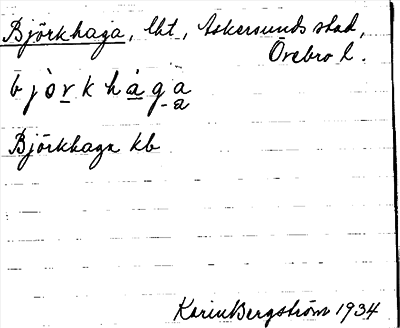 Björkhaga, lht, Askersunds stad,
Örebro l.
bjòrkhàga
a
Björkhaga kb
Karin Bergström 1934